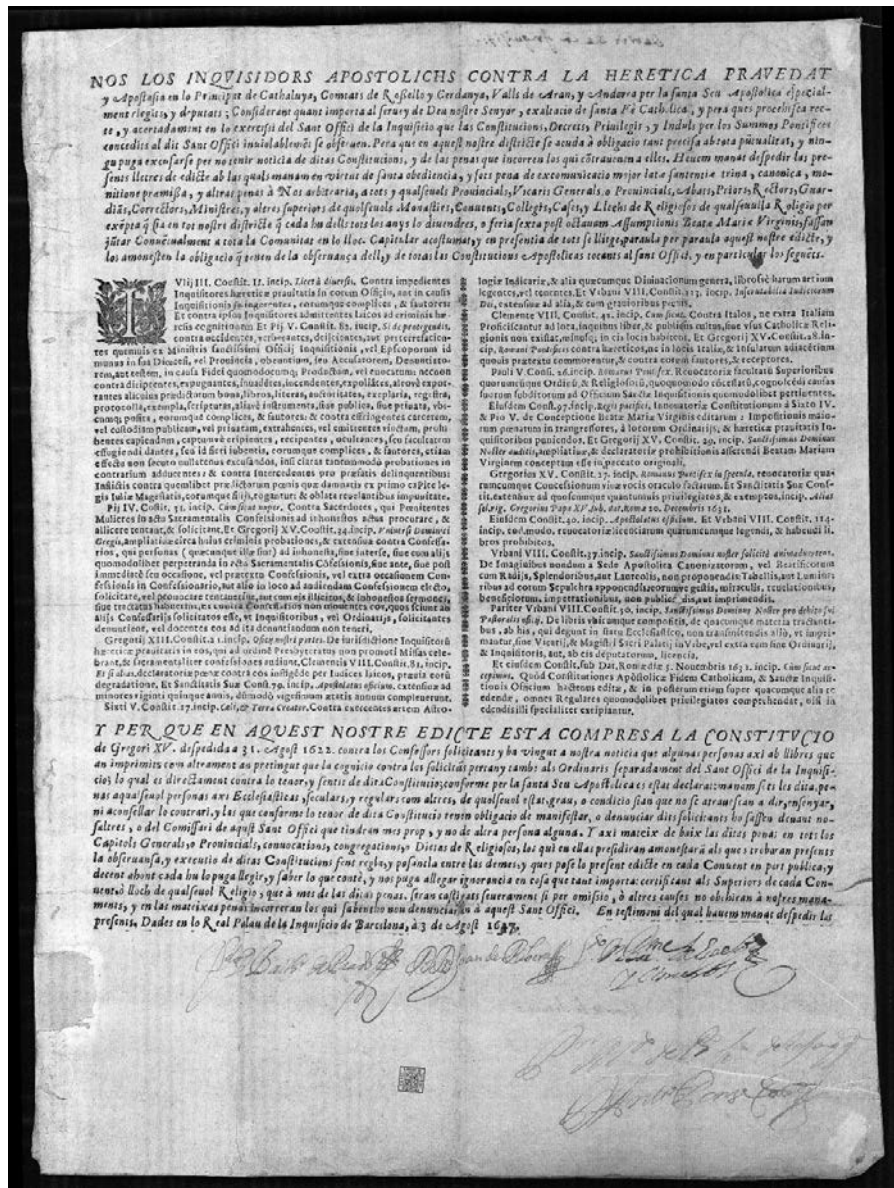 NOS LOS INQVISIDORS APOSTOLICHS CONTRA LA HERETICA PRAVEDAT
y Apostasia en lo Principat de Cathaluya, Comtats de Rossello y Cerdanya, Valls de Aran, y Andorra per la santa Seu Apostolica especial-
ment elegits, y deputats; Considerant quant importa al seruey de Deu nostre Senyor, exaltacio de santa Fè Catholica, y pera ques procehisca rec-
te, y acertadament en lo exercisi del Sant Offici de la Inquisicio que las Constitucions, Decrets, Priuilegis, y Indults per los Summos Pontifices
concedits al dit Sant Offici inuiolablement se obseruen. Pera que en aquest nostre districte se acuda à obligacio tant precisa ab tota pūtualitat, y nin-
gu puga excusarse per no tenir noticia de ditas Constitucions, y de las penas que incorren los qui cōtrauenen a elles. Heuem manat despedir las pre-
sents lletres de edicte ab las quals manam en virtut de santa obediencia, y sots pena de excomunicacio major latæ sententiæ trina, canonica, mo-
nitione præmissa, y altras penas à Nos arbitraria, a tots y qualseuols Prouincials, Vicaris Generals, o Prouincials, Abats, Priors, Rectors, Guar-
dians, Correctors, Ministres, y altres superiors de qualseuols Monastirs, Conuents, Collegis, Cases, y Llochs de Religiosos de qualseuulla Religio per
exēpta q̄ sia en tot nostre districte q̄ cada hu dells tots los anys lo diuendres, o feria sexta post octauam Assumptionis Beatæ Mariæ Virginis, fassan
jūtar Conuētualment a tota la Comunitat en lo lloc Capitular acostumat, y en presentia de tots se llitge, paraula per paraula aquest nostre edicte, y
los amonesten la obligacio q̄ tenen de la obseruança dell, y de totas las Constitucions Apostolicas tocants al sant Offici, y en particular los seguēts.
VIij III. Constit. II. incip. Licet à diuersis, Contra impedientes
Inquisitores hæreticæ prauitatis in eorum Officio, aut in causis
Inquisitionis se ingerentes, eorumque complices, & fautores:
Et contra ipsos Inquisitores admittentes laicos ad criminis hæ-
resis cognitionem Et Pij V. Constit. 82. incip. Si de protegendis.
contra occidentes, verberantes, deijcientes, aut perterrefacien-
tes quemuis ex Ministris sanctissimi Officij Inquisitionis, vel Episcoporum id
munus in sua Diœcesi, vel Prouincia, obeuntium, seu Accusatorem, Denuntiato-
rem, aut testem, in causa Fidei quomodocumq; Productum, vel euocatum: necnon
contra diripientes, expugnantes, inuadētes, incendentes, expoliātes, aliouè expor-
tantes alicuius prædictorum bona, libros, literas, auctoritates, exemplaria, registra,
protocolla, exempla, scripturas, aliauè instrumenta, siue publica, siue priuata, vbi-
cumq; posita, eorumque complices, & fautores: & contra effringentes carcerem,
vel custodiam publicam, vel priuatam, extrahentes, vel emittentes vinctum, prohi-
bentes capiendum, captumve eripientes, recipentes, ocultantes, seu facultatem
effugiendi dantes, seu id fieri iubentis, eorumque complices, & fautores, etiam
effectu non secuto nullatenus excusandos, nisi claras tantommodò probationes in
contrarium adducentes: & contra Intercedentes pro præfatis delinquentibus:
Inflictis contra quemlibet prædictorum pœnis quæ damnatis ex primo capite le-
gis Iuliæ Magestatis, eorumque filijs, rogantur: & oblata reuelantibus impunitate.
Pij IV. Costit. 31. incip. Cùm sicut nuper. Contra Sacerdotes, qui Penitentes
Mulieres in actu Sacramentalis Confessionis ad inhonestos actus procurare, &
allicere tentant, & solicitant. Et Gregorij XV. Constit. 34. incip. Vniuersi Dominici
Gregis, ampliatiua circa huius criminis probationes, & extensiua contra Confessa-
rios, qui personas (quæcunque illæ sint) ad inhonesta, siue interse, siue cum alijs
quomodolibet perpetranda in actu Sacramentalis Cōfessionis, siue ante, siue post
immediatè seu occasione, vel prætextu Confessionis, vel extra occasionem Con-
fessionis in Confessionario, aut alio in loco ad audiendam Confessionem electo,
solicitare, vel prouocare tentauerint, aut cum eis illicitos, & inhonestos sermones,
siue tractatus habuerint, Et contra Confessarios non monentes eos, quos sciunt ab
alijs Confessarijs solicitatos esse, vt Inquisitoribus, vel Ordinarijs, solicitantes
denuntient, vel docentes eos ad ita denuntiandum non teneri.
Gregorij XIII. Constit. 2. incip. Officij nostri partes. De iurisdictione Inquisitorū
hæreticæ prauitatis in eos, qui ad ordinē Presbyteratus non promoti Missas cele-
brant, & sacramentaliter confessiones audiunt, Clementis VIII. Constit. 81. incip.
Et si aliàs, declaratoriæ pœnæ contra eos infligēdæ per Iudices laicos, præuia eorū
degradatione. Et Sanctitatis Suæ Constit. 79. incip. Apostolatus officium. extensiuæ ad
minores viginti quinque annis, dūmodò vigesimum ætatis annum compleuerint.
Sixti V. Constit. 17. incip. Cœli, & Terræ Creator. Contra exercentes artem Astro-
logiæ Iudicariæ, & alia quæcumque Diuinationum genera, librosuè harum artium
legentes, vel tenentes. Et Vrbani VIII. Constit. 113. incip. Inscrutabilis Iudiciorum
Dei, extensiua ad alia, & cum grauioribus pœnis.
Clemente VIII. Constit. 41. incip. Cum sicut. Contra Italos, ne extra Italiam
Proficiscantur ad loca, in quibus liber, & publicus cultus, siue vsus Catholicæ Reli-
gionis non existat, minusq; in eis locis habitent. Et Gregorij XV. Constit. 28. in-
cip. Romani Pontificis contra hæreticos, ne in locis Italiæ, & Insularum adiacētium
quouis prætextu commorentur, & contra eorum fautores, & receptores.
Pauli V. Const. 26. incip. Romanus Pontifex. Reuocatoria facultatum Superioribus
quorumcūque Ordinū, & Religionū, quoquomodo cōcessarū, cognoscēdi causas
suorum subditorum ad Officium Sanctæ Inquisitionis quomodolibet pertinentes.
Eiusdem Const. 97. incip. Regis pacifici, Innouatoria Constitutionum à Sixto IV.
& Pio V. de Conceptione beatæ Mariæ Virginis editarum: Impositionis maio-
rum pœnarum in transgressores, à locorum Ordinarijs, & hæreticæ prauitatis In-
quisitoribus puniendos. Et Gregorij XV. Constit. 29. incip. Sanctissimus Dominus
Noster auditis, ampliatiua, & declaratoria prohibitionis asserendi Beatam Mariam
Virginem conceptam esse in peccato originali.
Gregorius XV. Constit. 17. incip. Romanus Pontifex in specula, reuocatoria qua-
rumcumque Concessionum viuæ vocis oraculo factarum. Et Sanctitatis Suæ Cons-
tit. extensiua ad quoscumque quantumuis priuilegiatos, & exemptos, incip. Alias
fœl. rig. Gregorius Papa XV. sub. dat. Romæ 20. Decembris 1631.
Eiusdem Constit. 40. incip. Apostolatus officium. Et Vrbani VIII. Constit. 114.
incip. eod. modo. reuocatoriæ licentiarum quarumcumque legendi, & habendi li-
bros prohibitos.
Vrbani VIII. Constit. 37. incip. Sanctissimus Dominus noster solicitè animaduertens.
De Imaginibus nondum à Sede Apostolica Canonizatorum, vel Beatificorum
cum Radijs, Splendoribus, aut Laureolis, non proponendis: Tabellis, aut Lumina-
ribus ad eorum Sepulchra apponendis: eorumque gestis, miraculis, reuelationibus,
beneficiorum. impetrationibus, non publicādis, aut imprimendis.
Pariter Vrbani VIII. Constit. 50. incip. Sanctissimus Dominus Noster pro debito sui
Pastoralis officij. De libris vbicumque compositis, de quacumque materia tractanti-
bus, ab his, qui degunt in statu Ecclesiastico, non transmittendis aliò, vt impri-
mantur, sine Vicarij, & Magistri Sacri Palatij in Vrbe, vel extra eam sine Ordinarij,
& Inquisitoris, aut, ab eis deputatorum, licentia.
Et eiusdem Constit. sub Dat. Romæ die 5. Nouembris 1631. incip. Cùm sicut ac-
cepimus. Quòd Constitutiones Apostolicæ Fidem Catholicam, & Sanctæ Inquisi-
tionis Officium hactenus editæ, & in posterum etiam super quacumque alia re
edendæ, omnes Regulares quomodolibet priuilegiatos comprehendat, nisi in
edendis illi specialiter excipiantur.
Y PER QVE EN AQVEST NOSTRE EDICTE ESTA COMPRESA LA CONSTITVCIO
de Gregori XV. despedida a 31. Agost 1622. contra los Confessors solicitants y ha vingut a nostra noticia que algunas personas axi ab llibres que
an imprimits com altrament an pretingut que la cognicio contra los solicitāts pertany tambe als Ordinaris separadament del Sant Offici de la Inquisi-
cio; lo qual es directament contra lo tenor, y sentit de dita Constitucio; conforme per la santa Seu Apostolica es estat declarat: manam sots les dita. pe-
nas a qualseuol personas axi Ecclesiasticas, seculars, y regulars com altres, de qualseuol estat, grau, o conditio sian que no se atreuescan a dir, ensenyar,
ni aconsellar lo contrari, y las que conforme lo tenor de dita Constitucio tenin obligacio de manifestar, o denunciar dits solicitants ho fassen deuant no-
saltres, o del Comissari de aquest Sant Offici que tindran mes prop, y no de altra persona alguna. Y axi mateix de baix las dites penas en tots los
Capitols Generals, o Prouincials, conuocations, congregations, o Dietas de Religiosos, los qui en ellas presidiran amonestarà als ques trobaran presents
la obseruansa, y executio de ditas Constitucions fent regla, y posantla entre las demes, y ques pose lo present edicte en cada Conuent en part publica, y
decent ahont cada hu lo puga llegir, y saber lo que contè, y nos puga allegar ignorancia en cosa que tant importa: certificant als Superiors de cada Con-
uent, ò lloch de qualseuol Religio, que à mes de las ditas penas. seran castigats seuerament si per omissio, ò altres causes no obehiran à nostres mana-
ments, y en las mateixas penas incorreran los qui sabentho non denunciarán à aquest Sant Offici. En testimoni del qual hauem manat despedir las
presents, Dades en lo Real Palau de la Inquisicio de Barcelona, à 3 de Agost 1647.